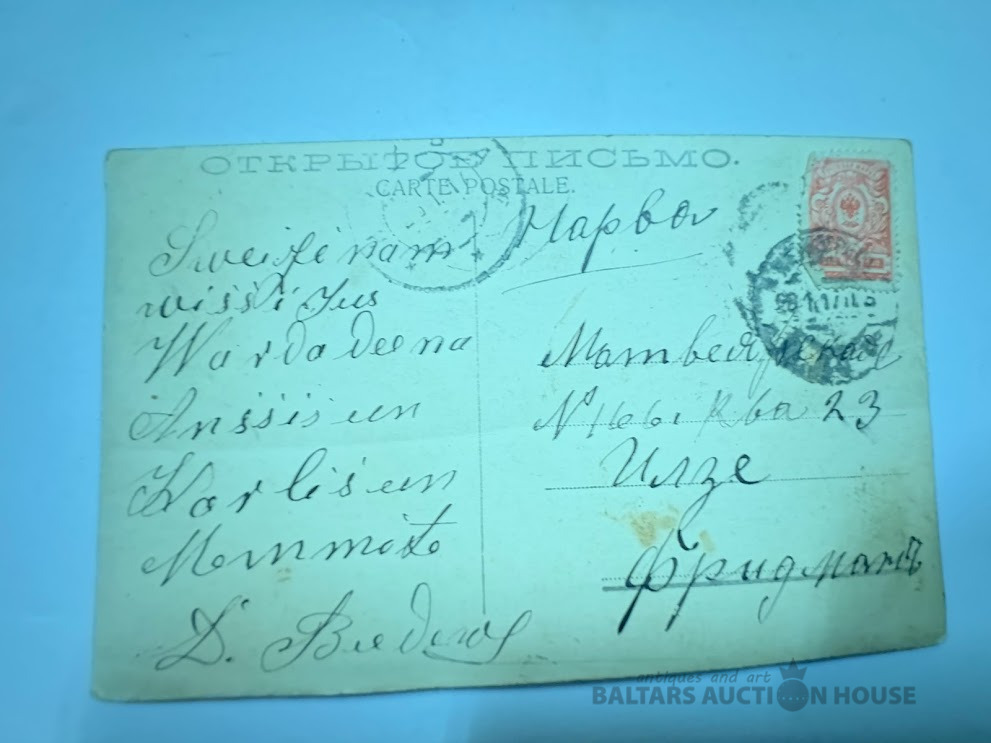 ОТКРЫТОЕ ПИСЬМО.
CARTE POSTALE.
Sweizenam
wissi Jus
Wardadeena
Anssis un
Karlis un
Mammiŧa
D.
Нарва
№ 166. Ква 23
Илзе
Фридманъ
antiques and art
BALTARS AUCTION HOUSE